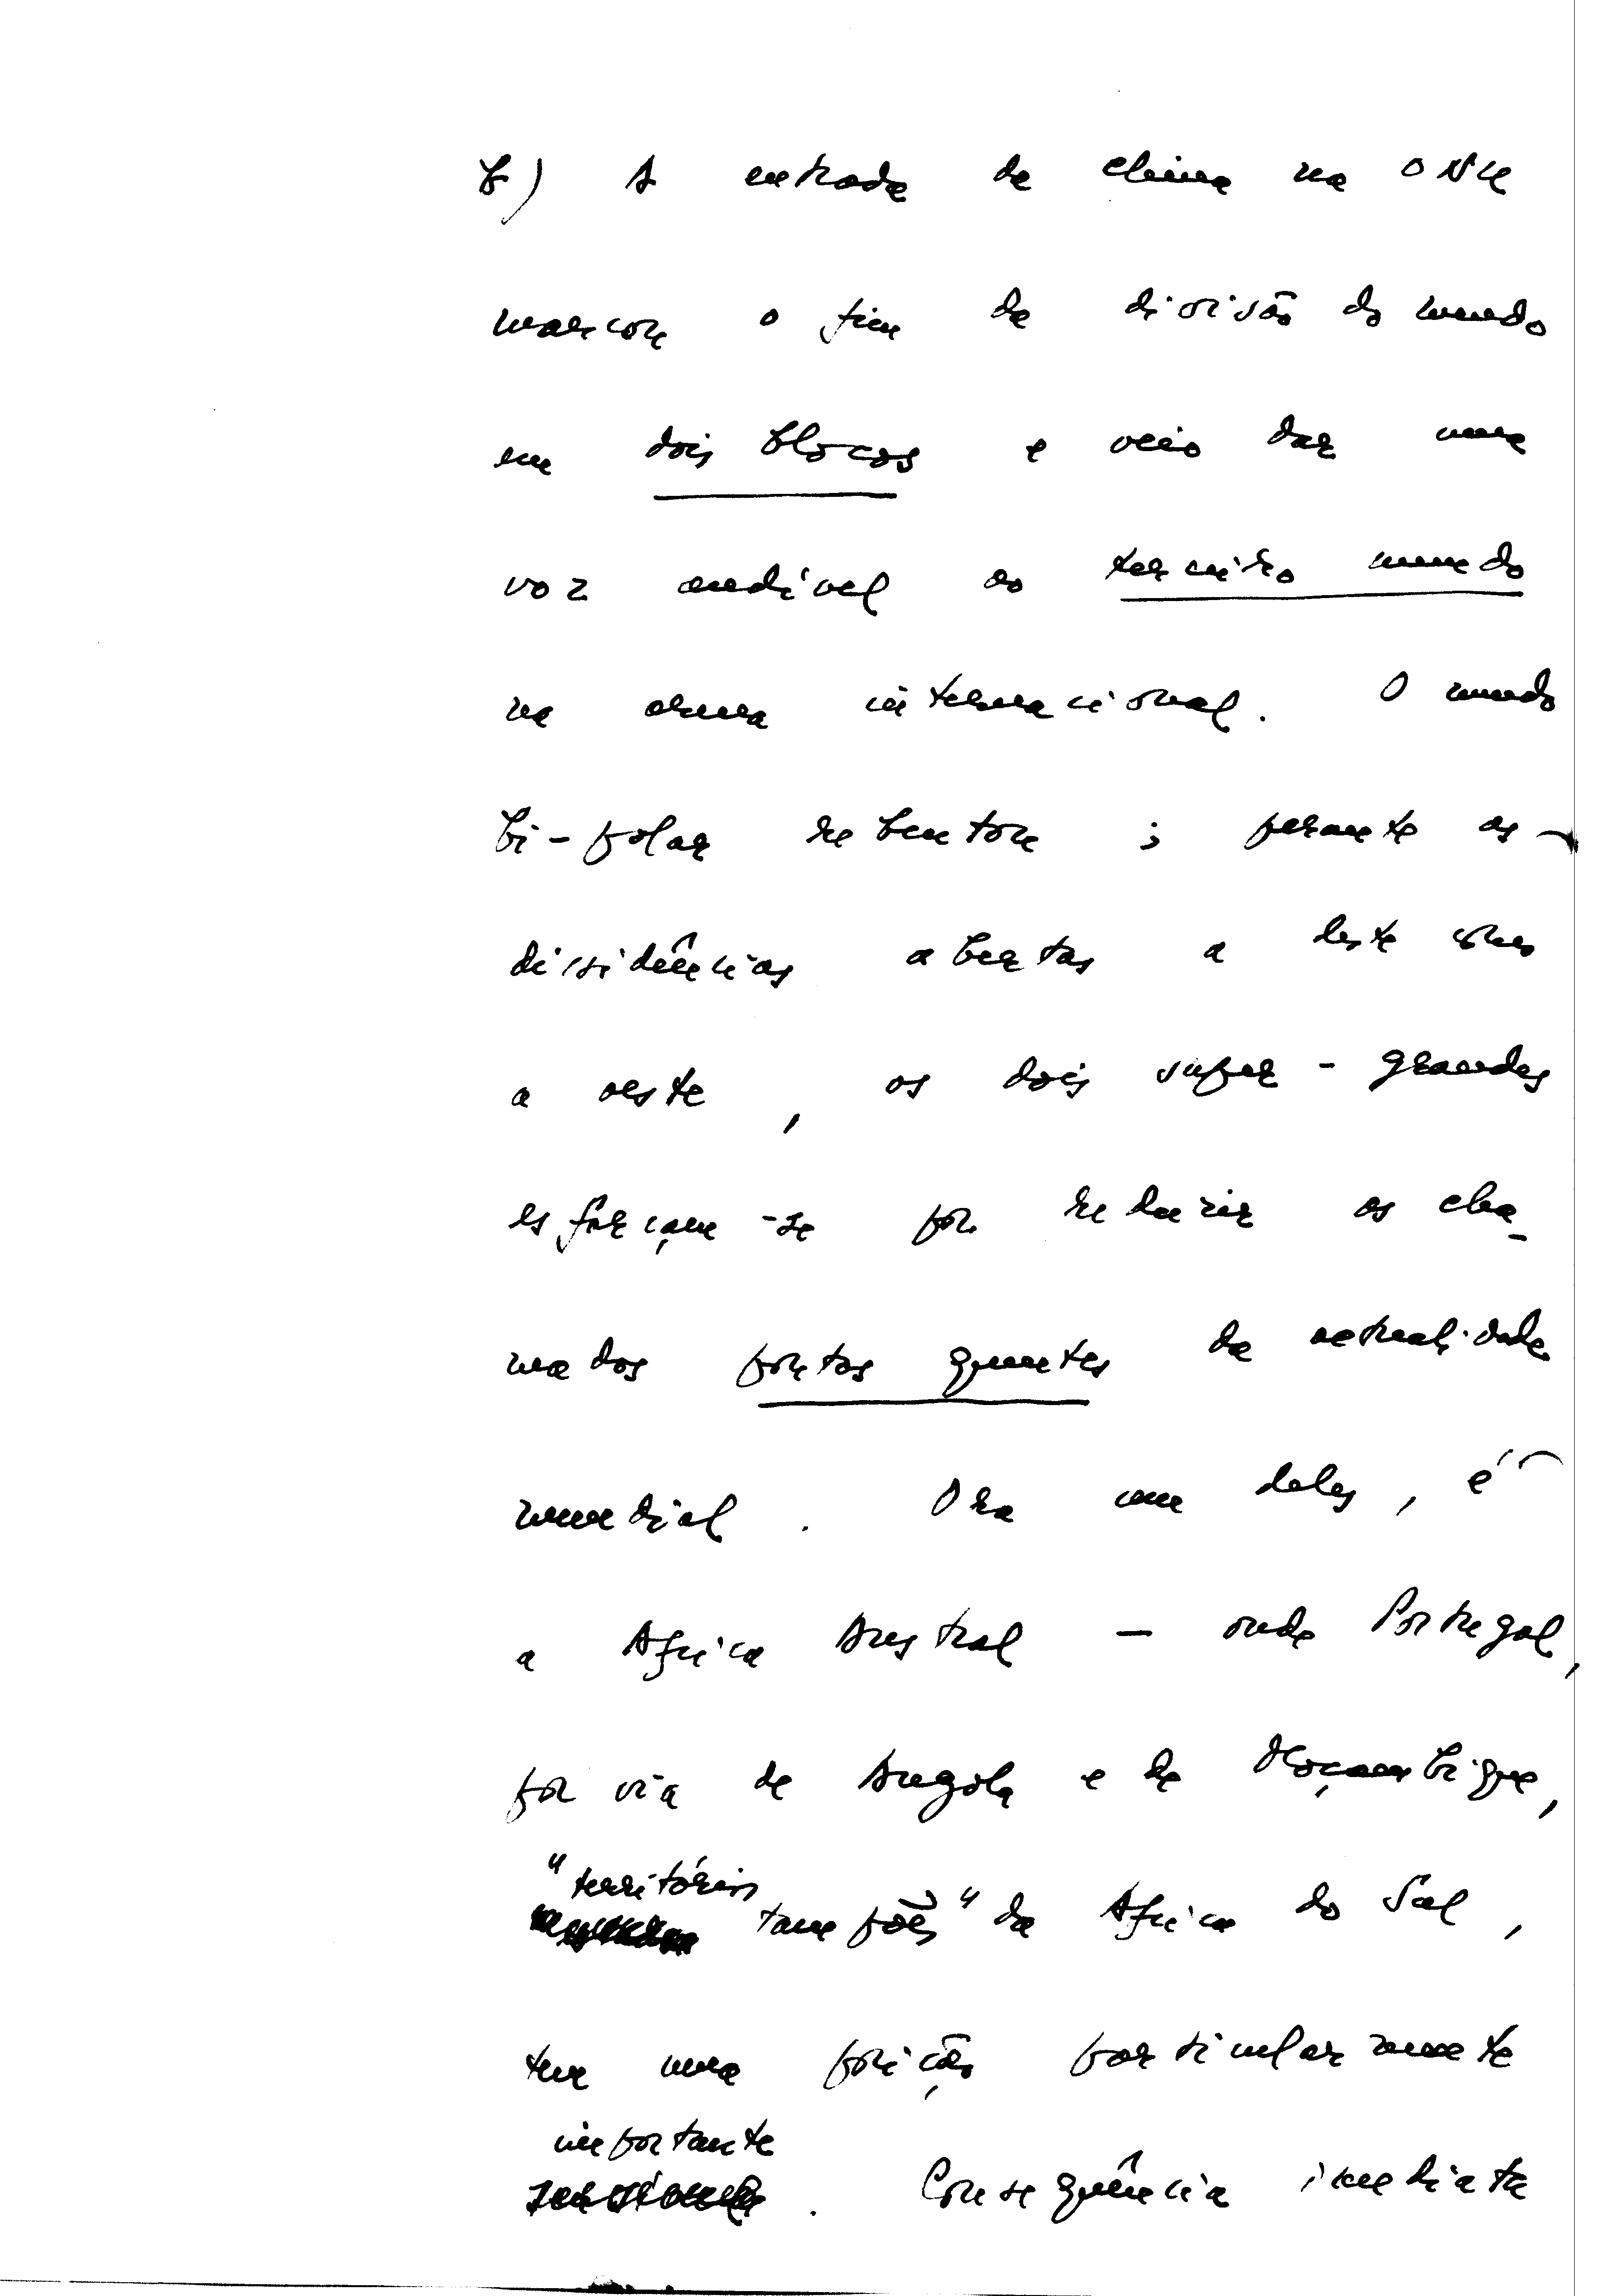 b) A entrada da China na ONU
marcou o fim da divisão do mundo
em dois blocos e veio dar uma
voz audível ao terceiro mundo
na arena internacional. O mundo
bi-polar rebentou; perante as
dissidências abertas a leste como
a oeste, os dois super-grandes
esforçam-se por reduzir os cha-
mados pontos quentes da actualidade
mundial. Ora um deles, é
a Africa Austral — onde Portugal,
por via de Angola e de Moçambique,
"territórios
tampões" da Africa do Sul,
tem uma posição particularmente
importante
. Consequência imediata